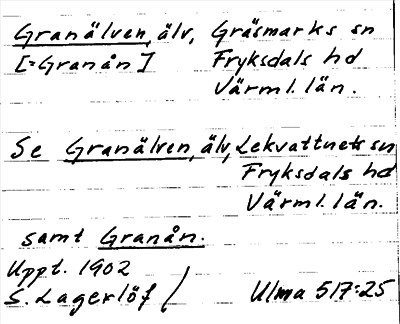 Granälven, älv, Gräsmarks sn
[=Granån] Fryksdals hd
Värml. län.
Se Granälven, älv, Lekvattnets sn
Fryksdals hd
Värml. län.
samt Granån.
Uppt. 1902
S. Lagerlöf Ulma 517:25